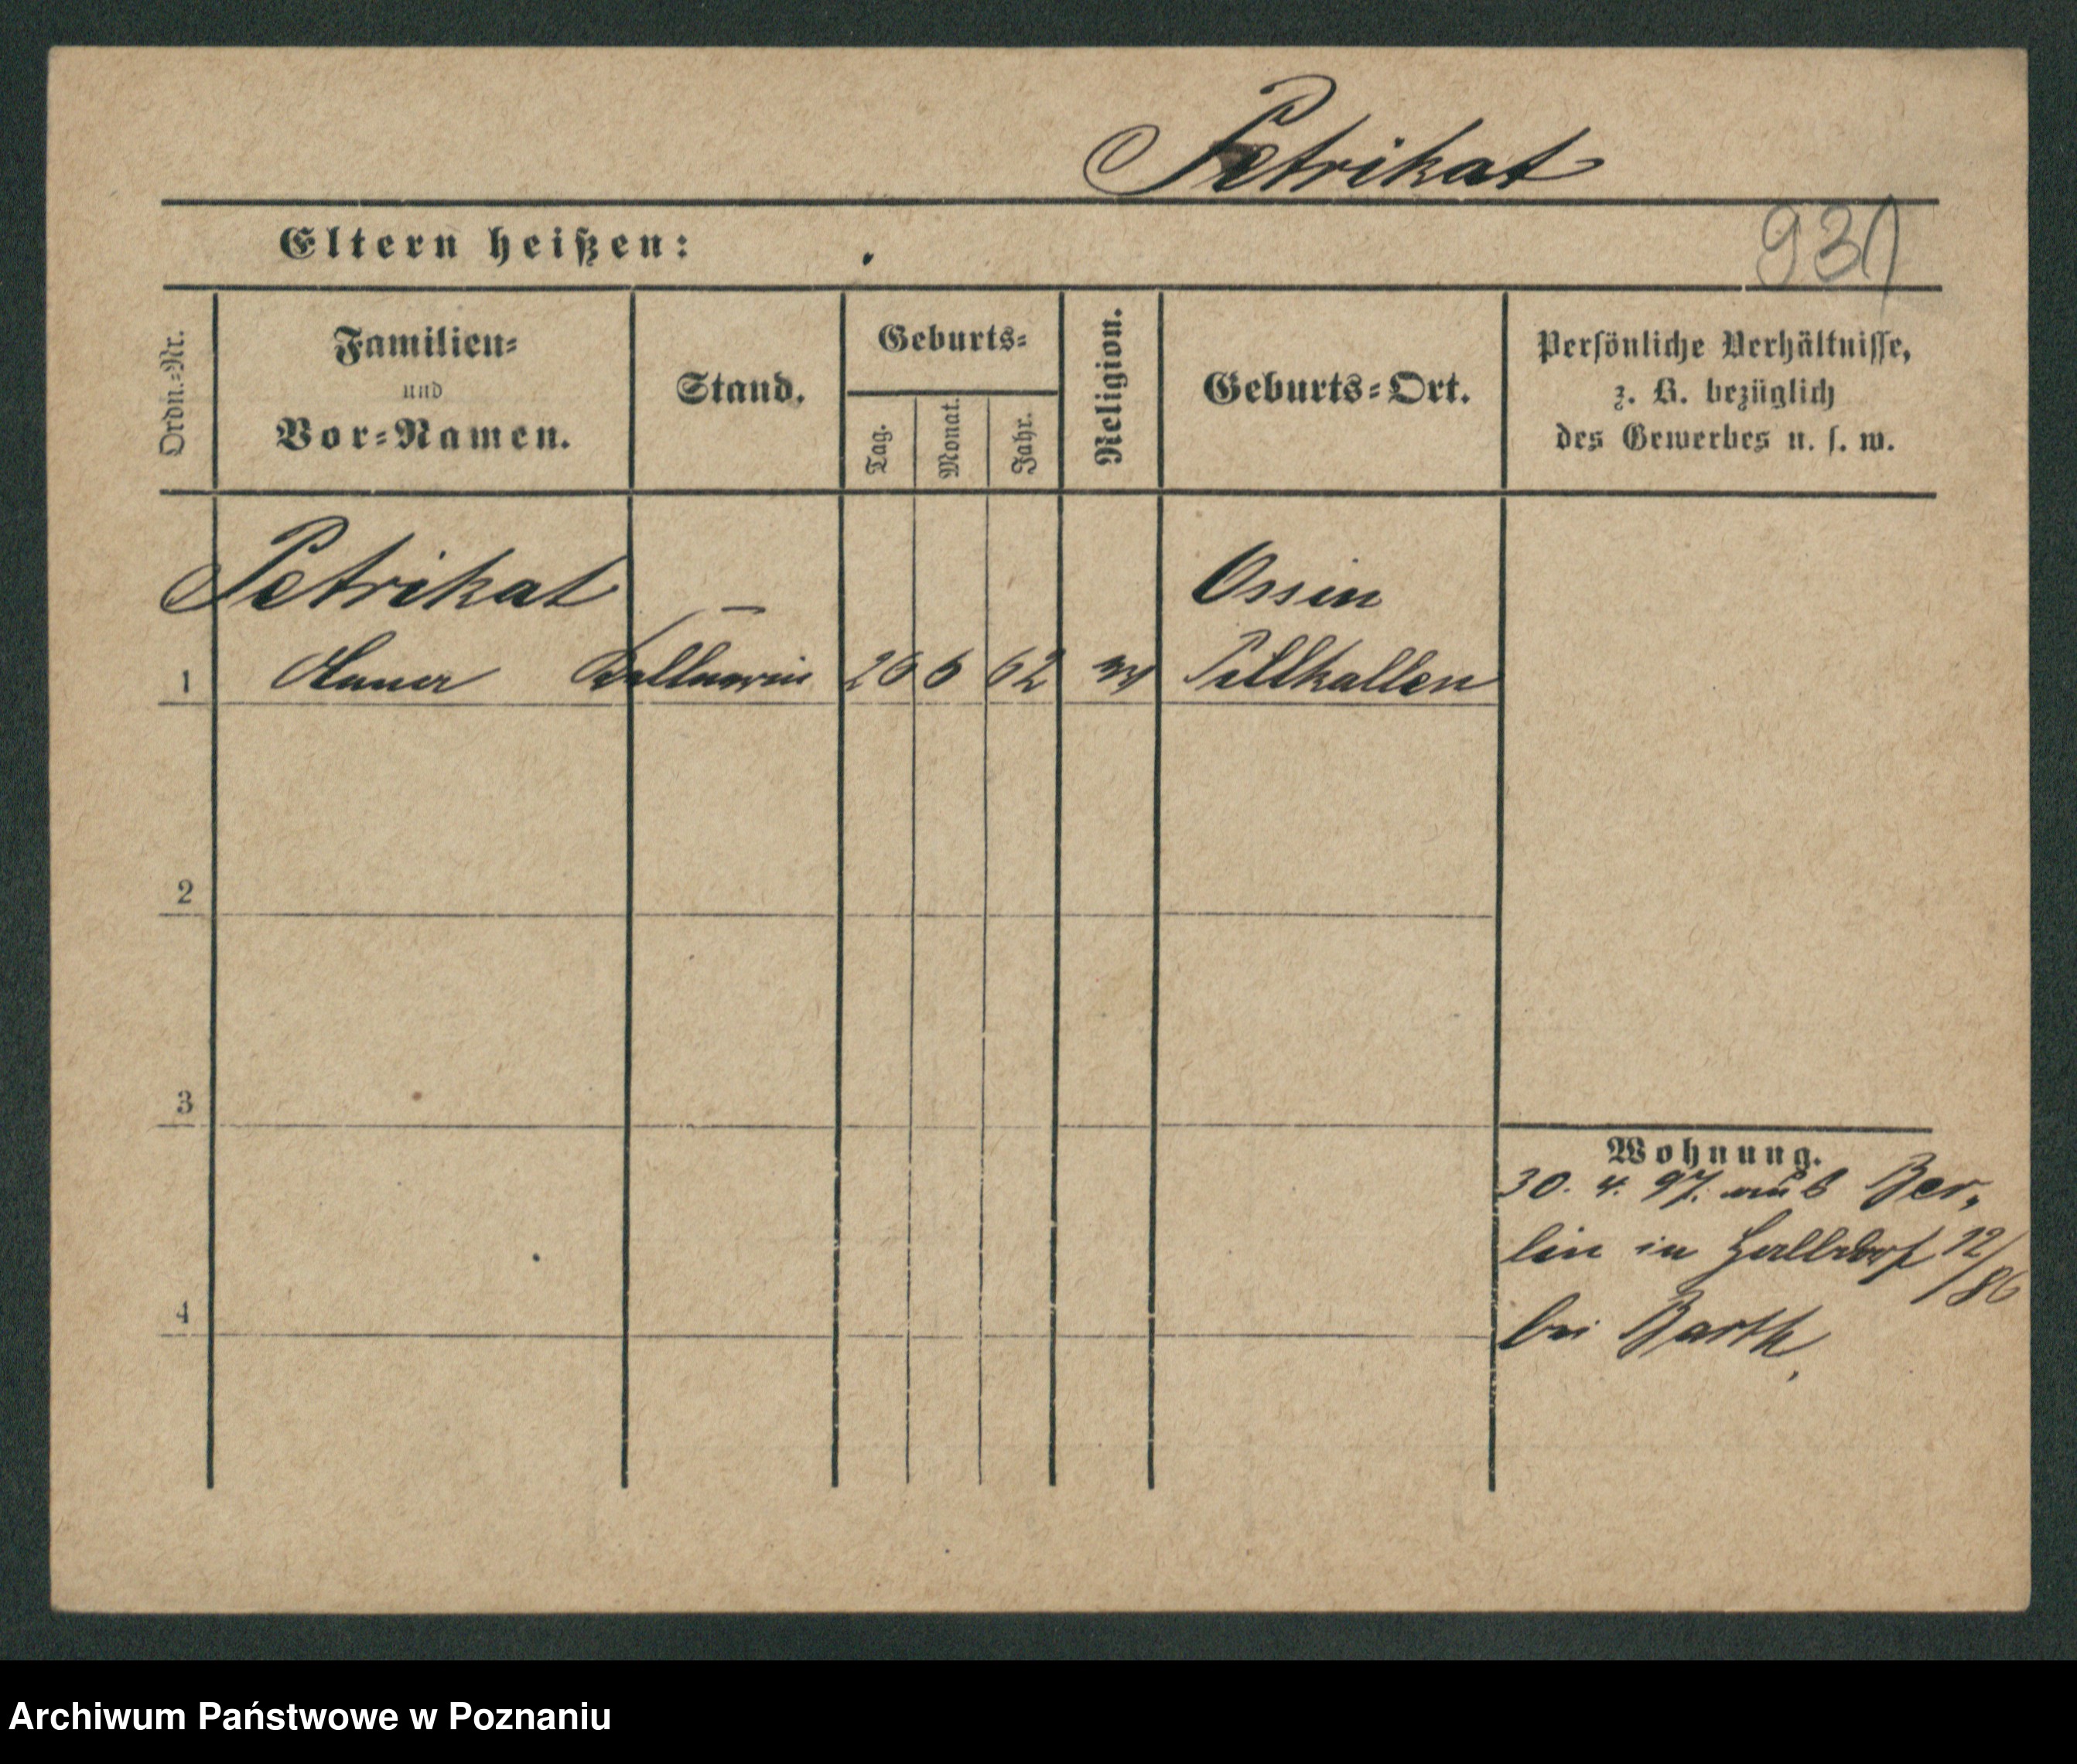 Petrikat
Eltern heißen:
931
Ordn.=Nr.
Familien=
und
Vor=Namen.
Stand.
Geburts=
Tag.
Monat.
Jahr.
Religion.
Geburts=Ort.
Persönliche Verhältnisse,
z. B. bezüglich
des Gewerbes u. s. w.
Petrikat
—
Ossin
1 Kellnerin 26 6 62 Pillkallen
2
3
4
Wohnung.
30. 4. 97. aus Ber,
lin in 12/86
bei Barth,
Archiwum Państwowe w Poznaniu